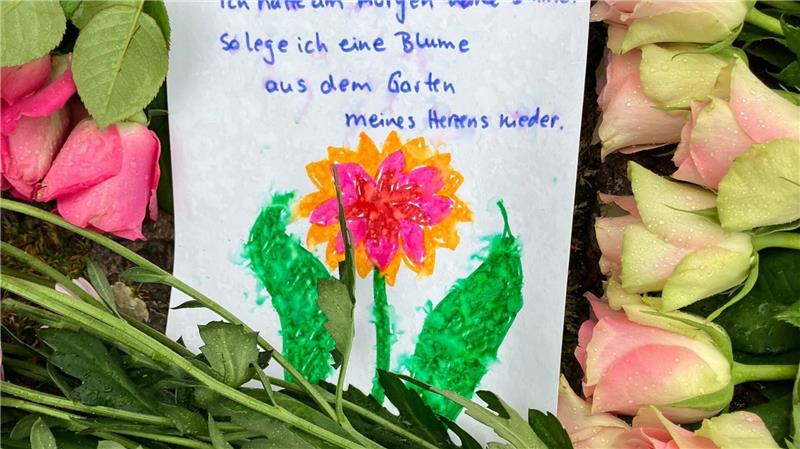 ich hatte am Morgen
So lege ich eine Blume
aus dem Garten
meines Herzens nieder.